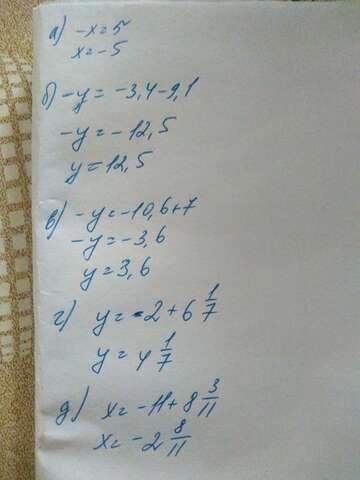 а) -x=5
x=-5
б) -y=-3,4-9,1
-y=-12,5
y=12,5
в) -y=-10,6+7
-y=-3,6
y=3,6
г) y=-2+6 1/7
y=4 1/7
д) x=-11+8 3/11
x=-2 8/11